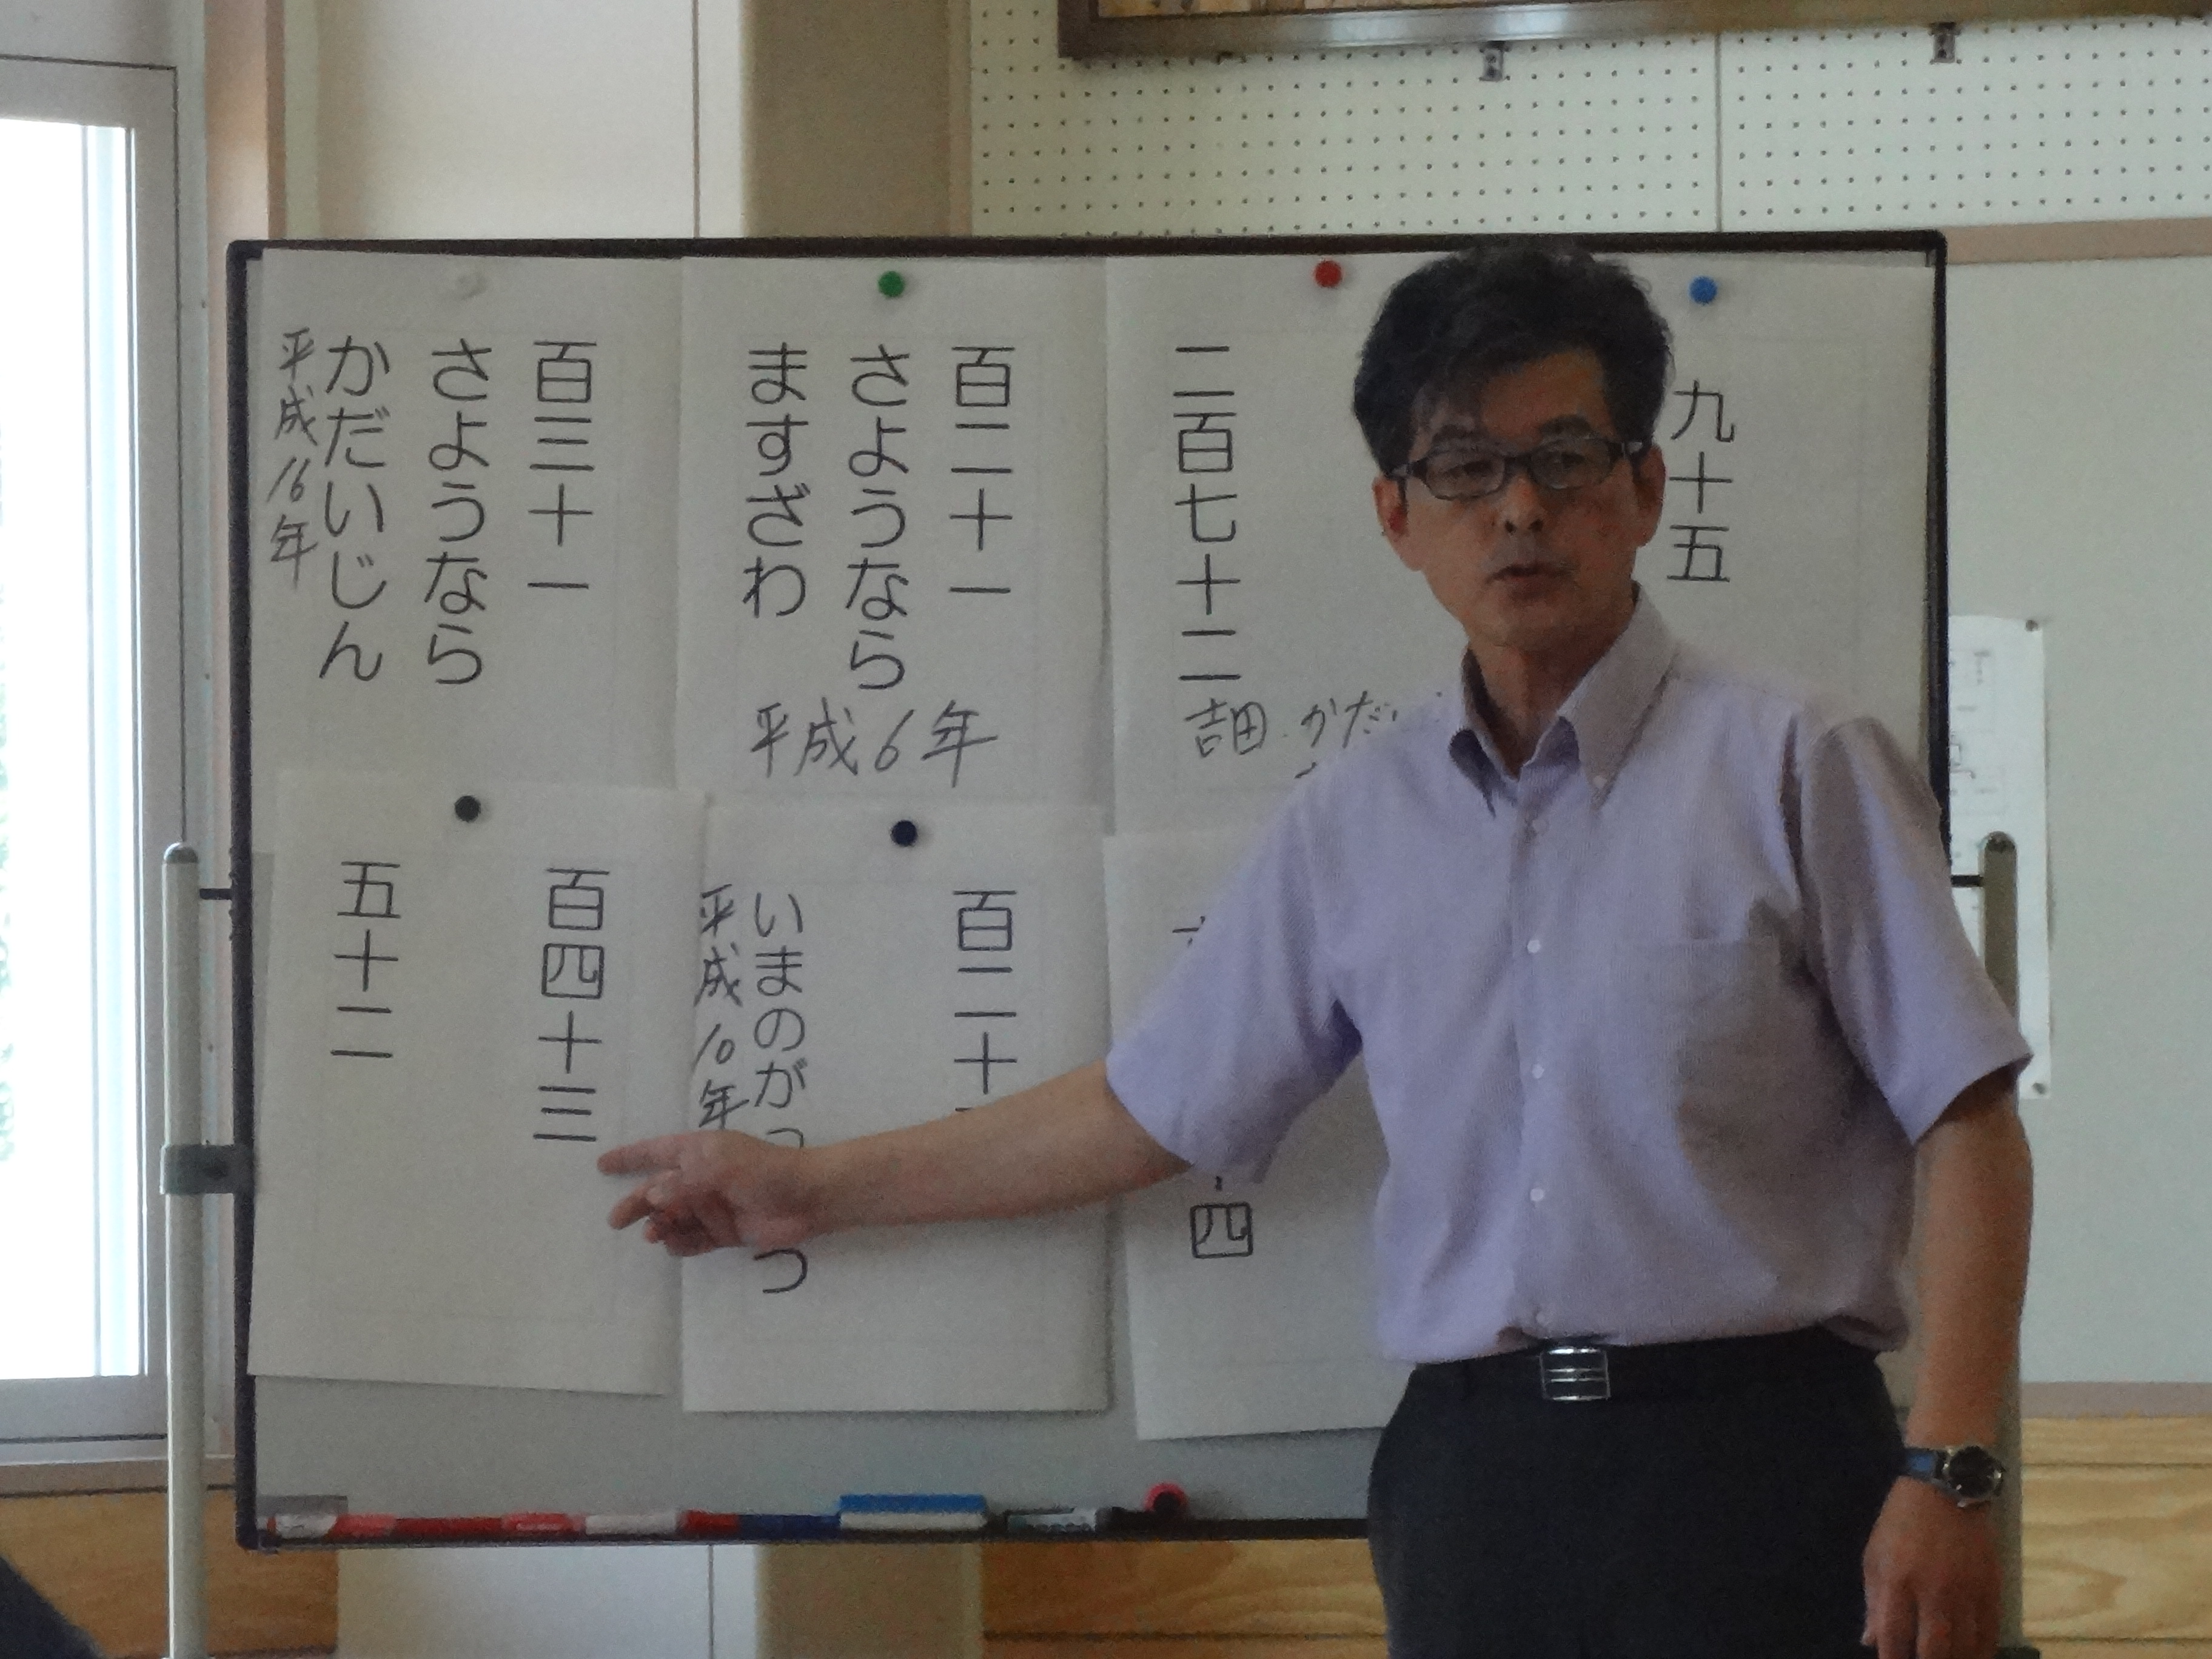 九十五
二百七十二
吉田 かだい
百二十一
さようなら
ますざわ
平成6年
百三十一
さようなら
かだいじん
平成16年
四
百二十
いまのがっ
つ
平成10年
百四十三
五十二